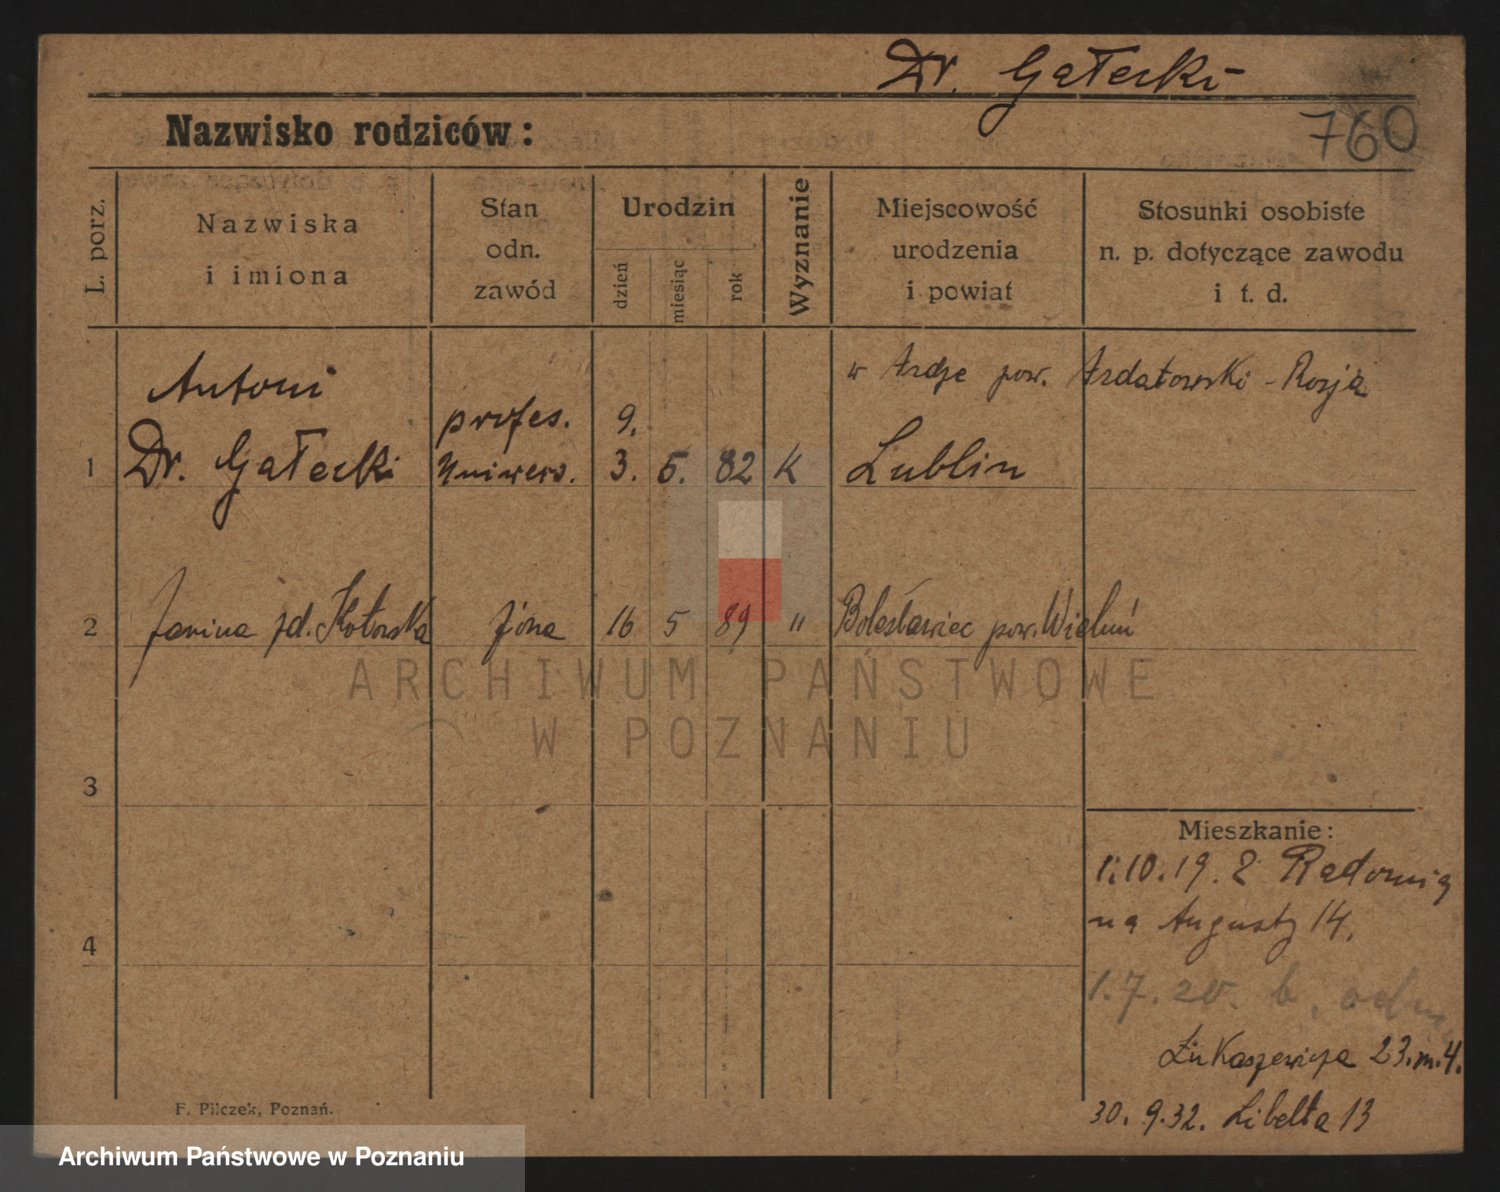 Dr. Gałecki
Nazwisko rodziców:
760
L. porz.
Nazwiska
i imiona
Stan
odn.
zawód
Urodzin
dzień
miesiąc
rok
Wyznanie
Miejscowość
urodzenia
i powiat
Stosunki osobiste
n. p. dotyczące zawodu
i t. d.
w pow. Ardatowski - Rosja
Antoni
profes. 9.
1 Dr. Gałecki Uniwers. 3. 5. 82 K Lublin
2 Janina żd. Kotowska żona 16 5 89 " Bolesławiec pow. Wieluń
ARCHIWUM PAŃSTWOWE
W POZNANIU
3
Mieszkanie:
1.10.19. z Radomia
na Augusty 14.
4
1.7.20. b.
Łukaszewicza 23. m. 4.
30. 9. 32. Libelta 13
F. Pilczek, Poznań.
Archiwum Państwowe w Poznaniu